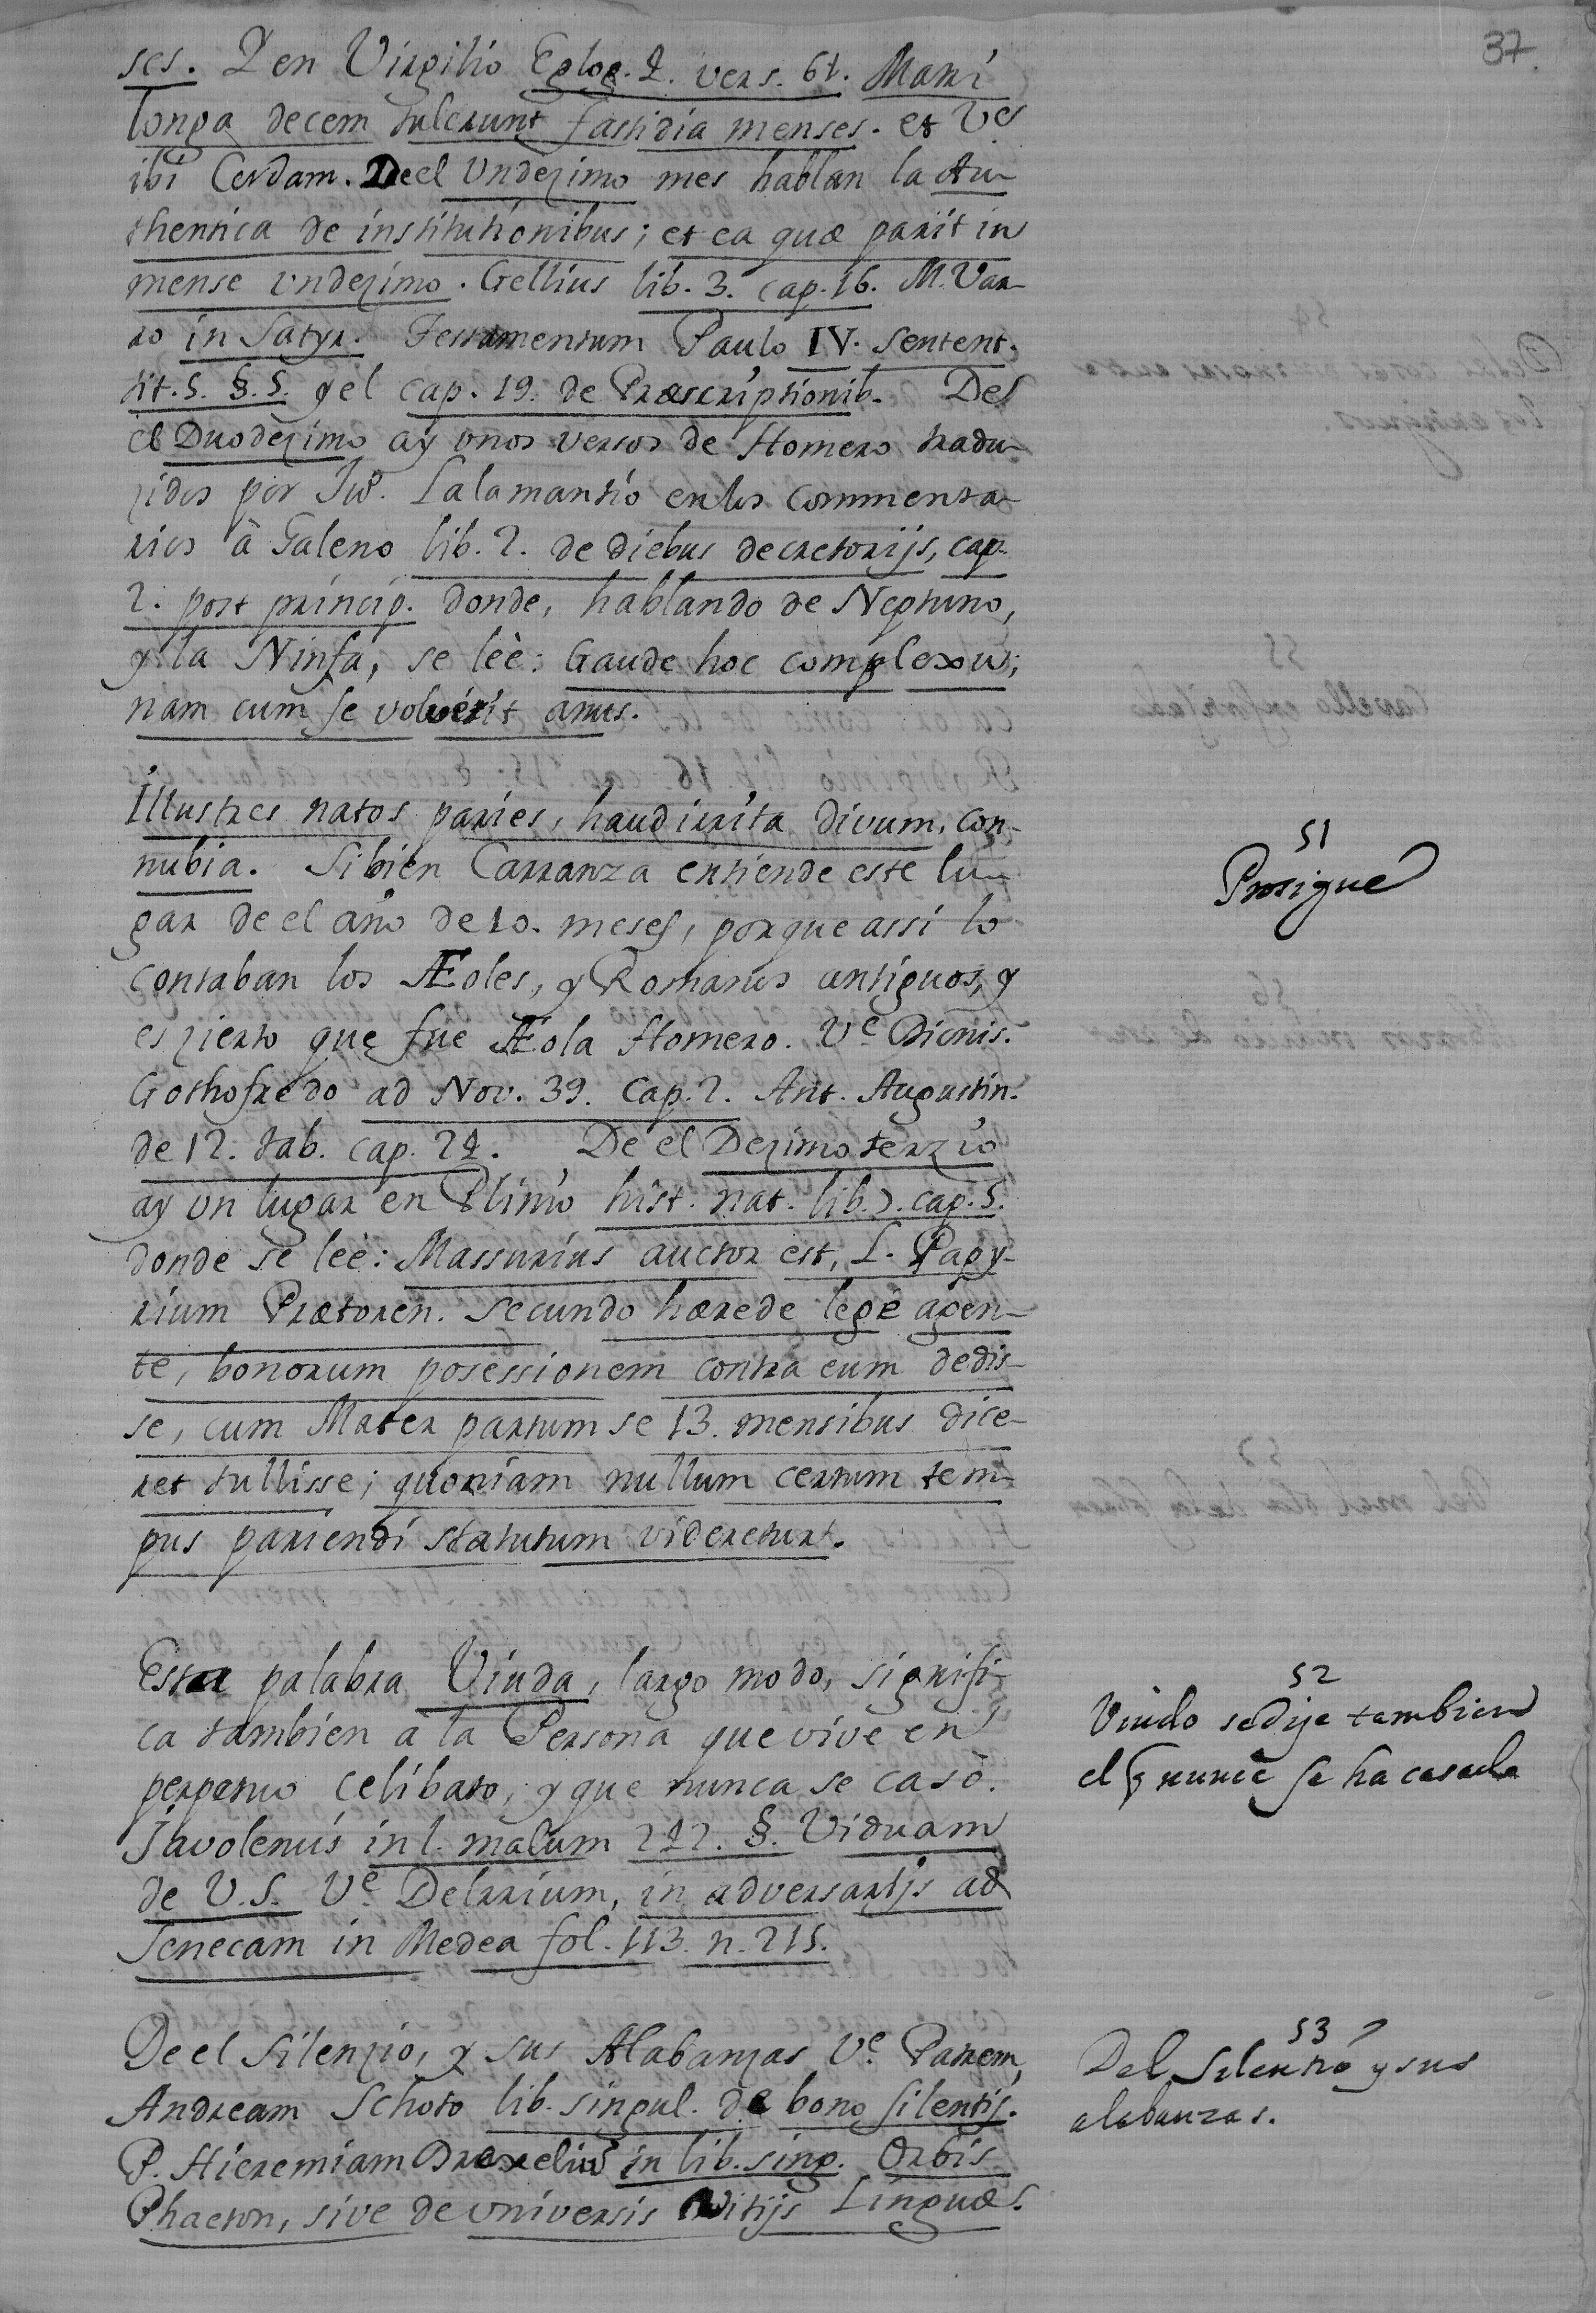 37.
ses. Y en Virgilio Eglog. 4. vers. 61. Mari
longa decem tulerunt fastidia menses. et Ve
ibi Cerdam. De el Undezimo mes hablan la Au-
thentica de institutionibus; et ea quæ parit in
mense undezimo. Gellius lib. 3. cap. 16. M. Var-
ro in Satyr. Testamentum Paulo IV. Sentent.
tit. 5. §. 5. y el cap. 19. de Præscriptionib. De
el Duodezimo ay unos versos de Homero tradu-
zidos por Juº. Lalamantio en los Commenta-
rios à Galeno lib. 2. de diebus decretorijs, cap.
2. post princip. donde, hablando de Neptuno,
y la Ninfa, se leè: Gaude hoc complexu;
nam cum se volverit anus.
Illustres natos paries, haud irrita divum, con-
nubia. Si bien Carranza entiende este lu-
gar de el año de 10. meses, porque assi lo
contaban los Æoles, y Romanos antiguos, y
es zierto que fue Æola Homero. Ve Dionis.
Gothofredo ad Nov. 39. Cap. 2. Ant. Augustin.
de 12. tab. cap. 24. De el Dezimo terzio
ay un lugar en Plinio hist. nat. lib. 7. cap. 5.
donde se leè: Massurius auctor est, L. Papy-
rium Prætoren. secundo hærede lege agen-
te, bonorum posessionem contra eum dedis-
se, cum Mater partum se 13. mensibus dice-
ret tullisse; quoniam nullum certum tem-
pus pariendi statutum videretur.
51
Prosigue
Esta palabra Viuda, largo modo, signifi-
ca tambien à la Persona que vive en
perpetuo celibato, y que nunca se casò.
Javolenus in l. malum 242. §. Viduam
de V.S. Ve Delrrium, in adversarijs ad
Senecam in Medea fol. 113. n. 215.
52
Viudo se dije tambien
el q nunca se ha casado
De el Silenzio, y sus Alabanzas Ve Patrem,
Andream Schoto lib. singul. de bono silentij.
P. Hieremiam Drexeliu in lib. sing. Orbis
Phaeton, sive de universis vitijs Linguæ.
53
Del Silentio y sus
alabanzas.